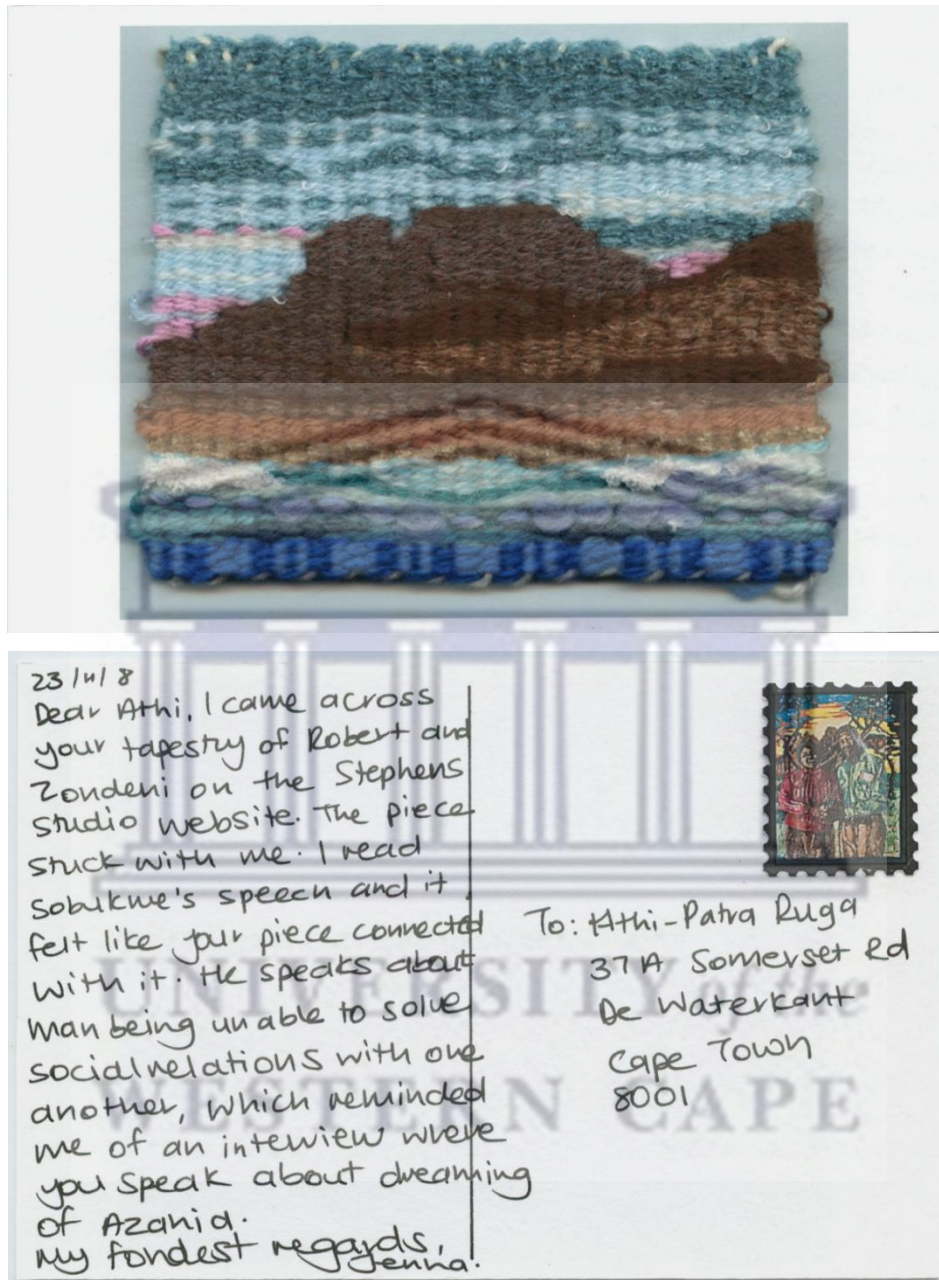 23/11/8
Dear Athi, I came across
your tapestry of Robert and
Zondeni on the Stephens
Studio website. The piece
stuck with me. I read
Sobukwe's speech and it
felt like your piece connected
with it. He speaks about
man being unable to solve
social relations with one
another, which reminded
me of an interview where
you speak about dreaming
of Azania.
My fondest regards,
Jenna.
To: Athi-Patra Ruga
37A Somerset Rd
De Waterkant
Cape Town
8001
UNIVERSITY of the
WESTERN CAPE